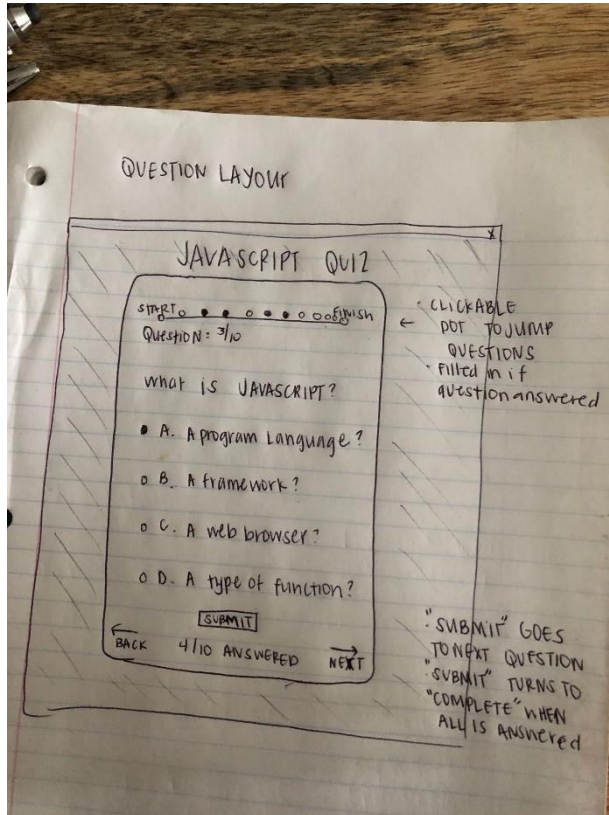 QUESTION LAYOUT
X
JAVASCRIPT QUIZ
START FINISH
QUESTION: 3/10
WHAT IS JAVASCRIPT?
A. A program Language?
B. A framework?
C. A web browser?
D. A type of function?
SUBMIT
BACK 4/10 ANSWERED NEXT
· CLICKABLE
← DOT TO JUMP
QUESTIONS
· Filled in if
question answered
· "SUBMIT" GOES
TO NEXT QUESTION
· "SUBMIT" TURNS TO
"COMPLETE" WHEN
ALL IS ANSWERED